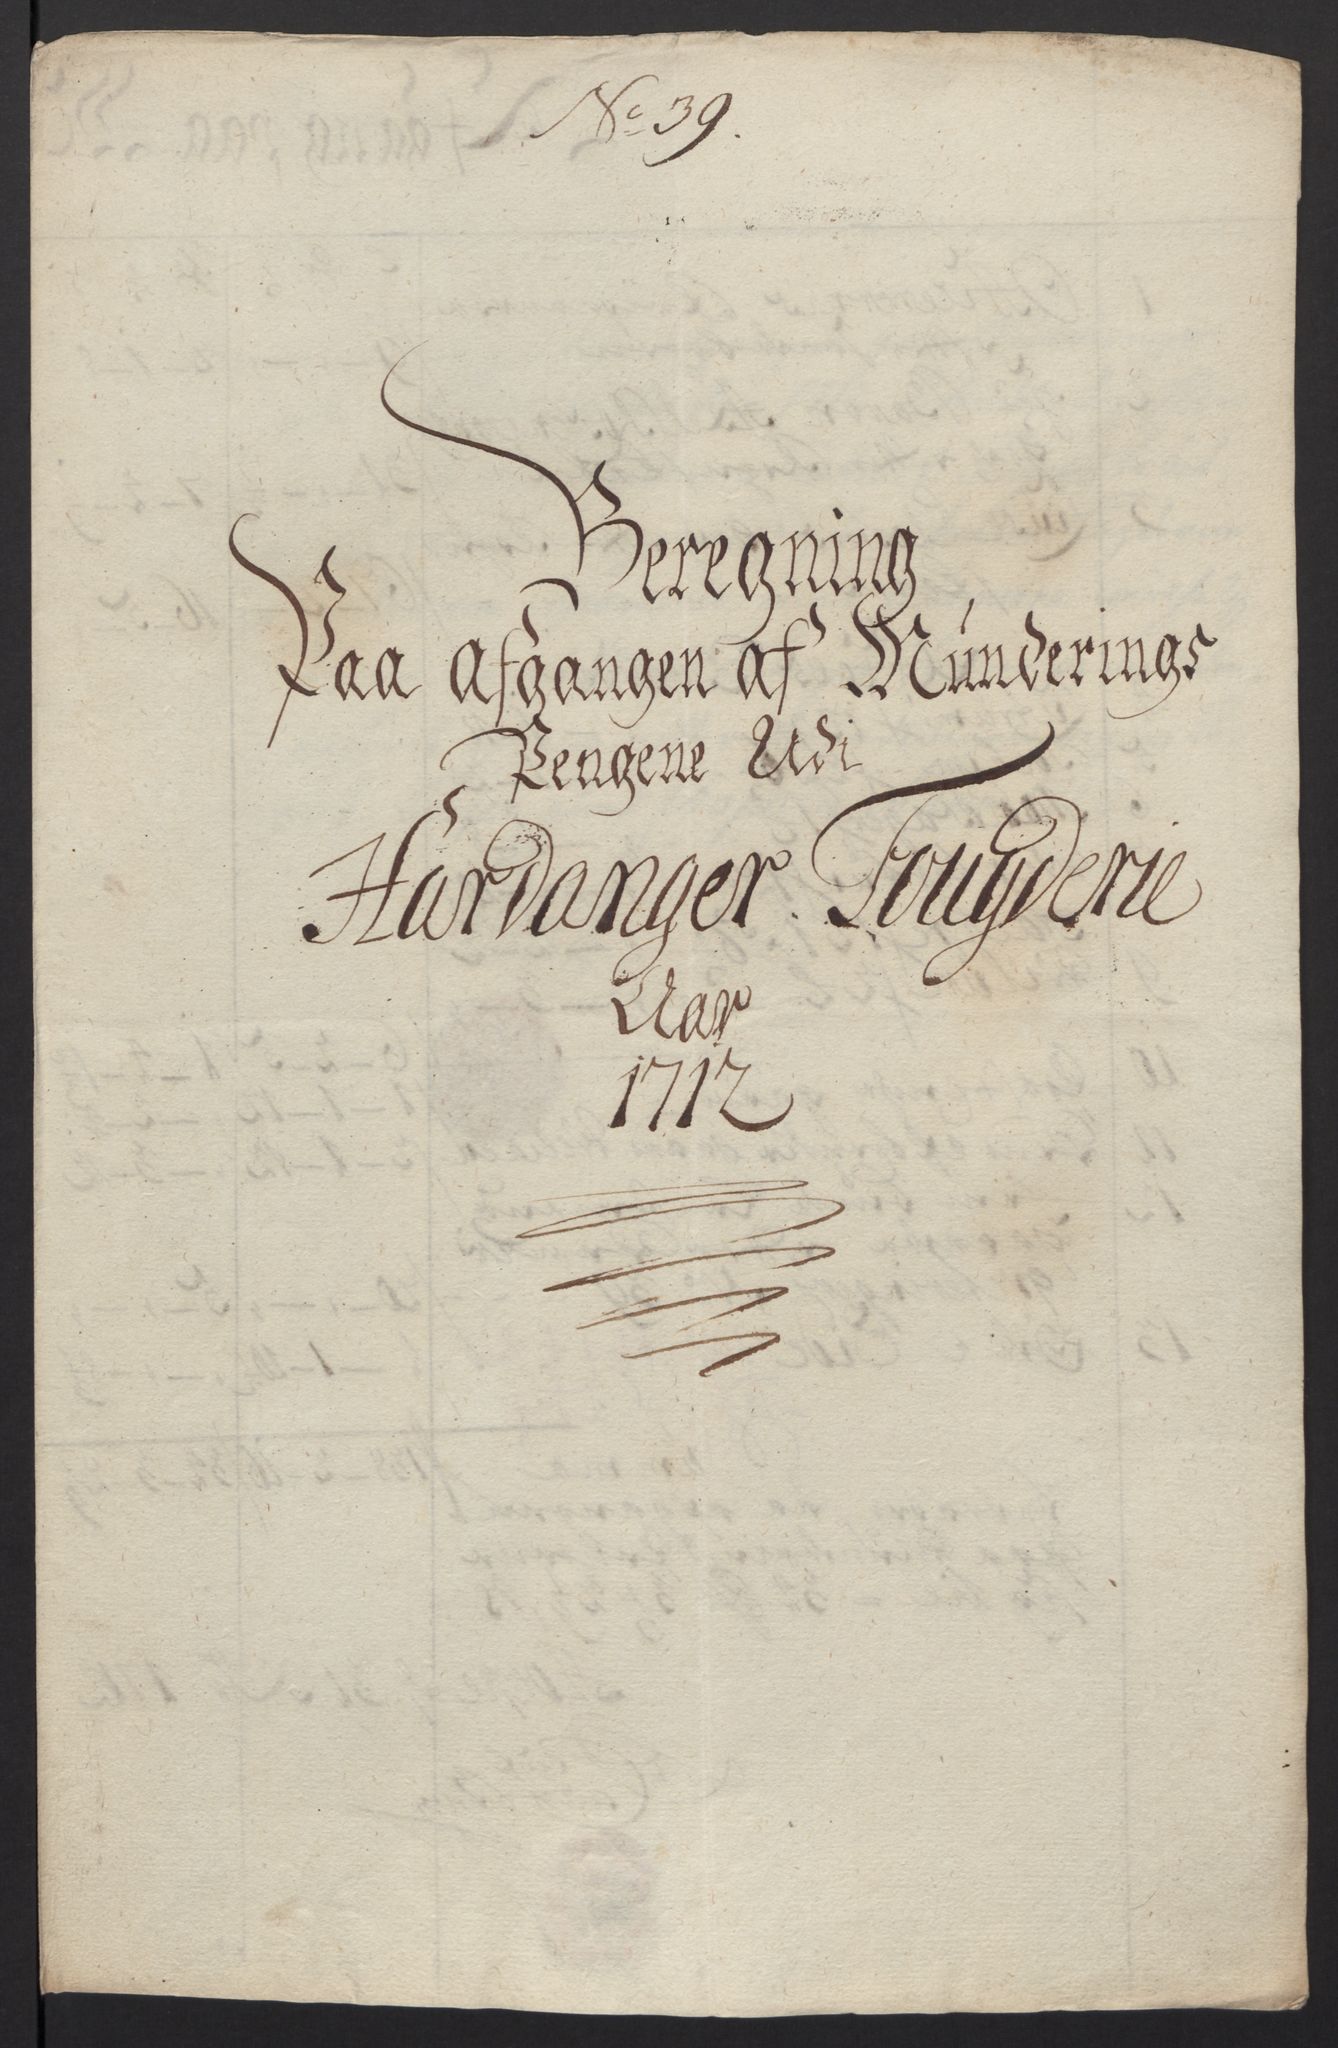 No 39.
Beregning
Paa afgangen af Münderings
Pengene Udi
Hardanger Fougderie
Aar
1712